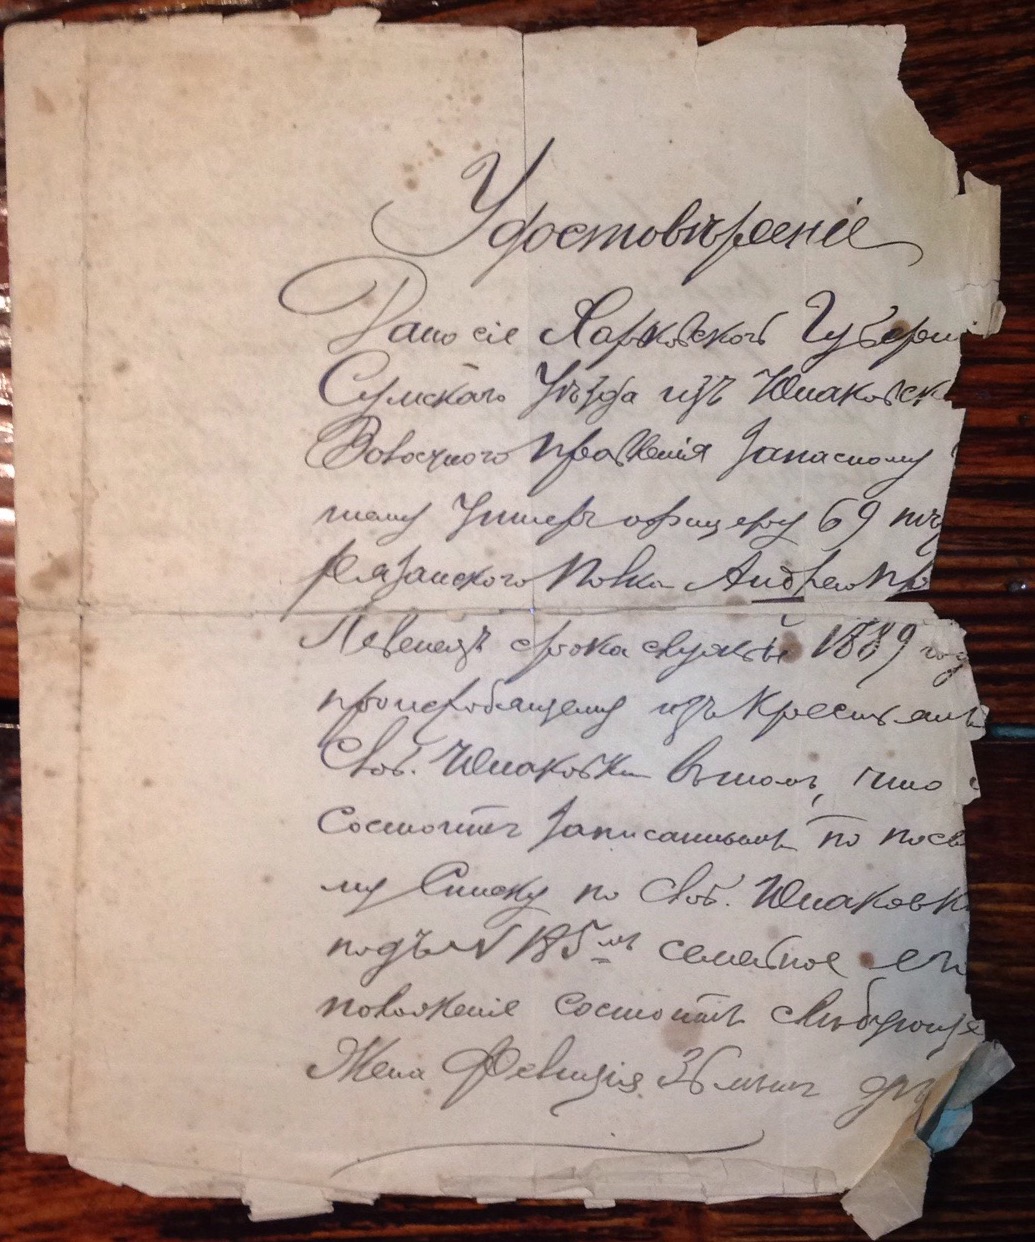 Удостовѣреніе
Дано сіе Харьковской Губерні
Сумскаго Уѣзда изъ Юнаковск
Волосчного правленія Запасному
шему Унтеръ офицеру 69 пѣ
Рязанского Полка Андрею Пр
Левенецъ срока службы 1889 год
происходящему изъ Крестьянъ
Слоб. Юнаковки вътомъ, что
Состоитъ Записаннымъ по посе
му Списку по Слоб. Юнаковк
подъ N 185мъ семейное его
положеніе состоитъ слѣдующе
Жена Февпзія 36 лѣтъ